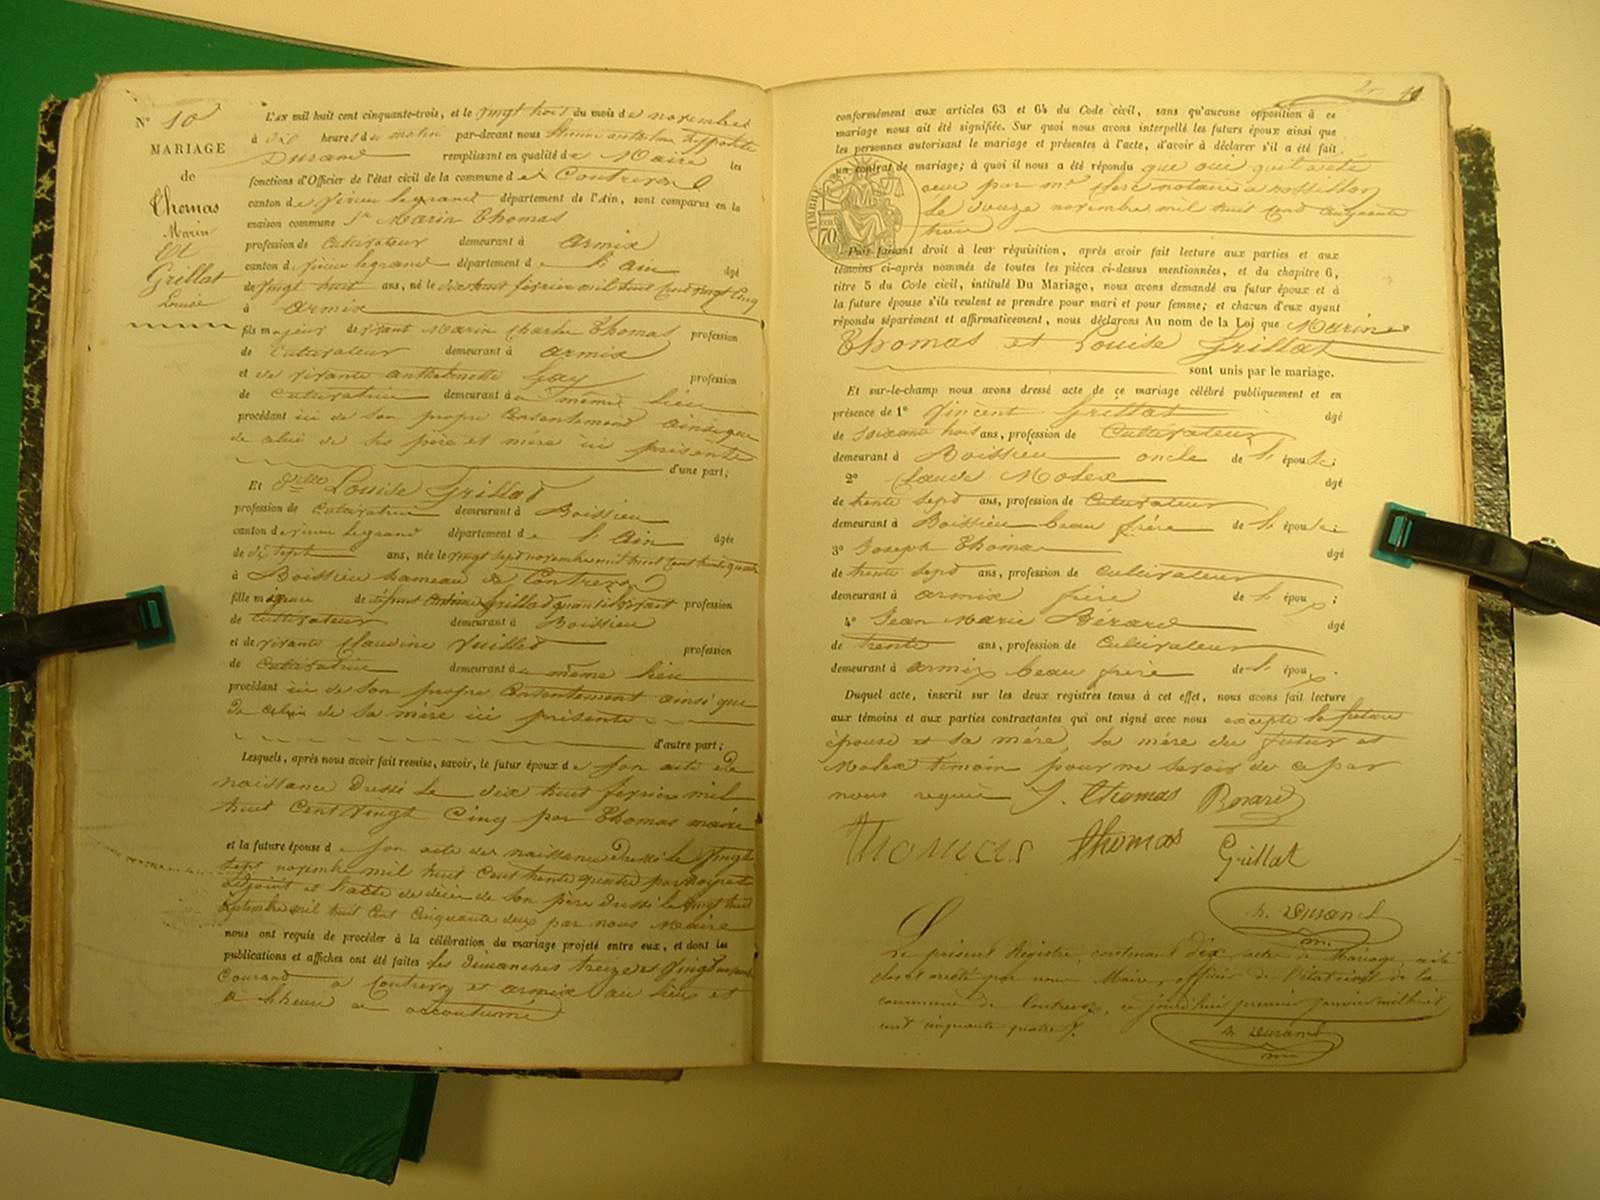 N° 10
MARIAGE
de
Thomas
Marin
Et
Grillat
Louise
L'an mil huit cent cinquante-trois, et le vingt huit du mois de novembre
à dix heures du matin par-devant nous hyppolite
Durand remplissant en qualité de Maire les
fonctions d'Officier de l'état civil de la commune de Contrevoz
canton de virieu le grand département de l'Ain, sont comparus en la
maison commune Sr Marin Thomas
profession de Cultivateur demeurant à armix
canton de virieu le grand département de l'ain âgé
de vingt huit ans, né le dix huit février mil huit cent vingt cinq
à armix
fils majeur de vivant Marin Charles Thomas profession
de Cultivateur demeurant à armix
et de vivante anthelmette Gay profession
de Cultivatrice demeurant au même lieu
procédant ici de son propre Consentement ainsi que
de celui de ses père et mère ici présents
d'une part;
Et dlle Louise Grillat
profession de Cultivatrice demeurant à Boissieu
canton de virieu le grand département de l'Ain âgée
de dix sept ans, née le vingt sept novembre mil huit cent trente quatre
à Boissieu hameau de Contrevoz
fille mineure de défunt Grillat quand il vivait profession
de Cultivateur demeurant à Boissieu
et de vivante Claudine Juillet profession
de Cultivatrice demeurant au même lieu
procédant ici de son propre Consentement ainsi que
de celui de sa mère ici présente
d'autre part;
Lesquels, après nous avoir fait remise, savoir, le futur époux de son acte de
naissance dressé le dix huit février mil
huit Cent vingt Cinq par Thomas maire
et la future épouse de son acte de naissance dressé le vingt
sept novembre mil huit Cent trente quatre par
adjoint et l'acte de décès de son père dressé le vingt huit
septembre mil huit Cent Cinquante deux par nous Maire
nous ont requis de procéder à la célébration du mariage projeté entre eux, et dont les
publications et affiches ont été faites les dimanches treize et vingt novembre
Courant à Contrevoz et armix au lieu et
à l'heure accoutumé
conformément aux articles 63 et 64 du Code civil, sans qu'aucune opposition à ce
mariage nous ait été signifiée. Sur quoi nous avons interpellé les futurs époux ainsi que
les personnes autorisant le mariage et présentes à l'acte, d'avoir à déclarer s'il a été fait
un contrat de mariage; à quoi il nous a été répondu que oui qu'il a été
reçu par me notaire à Rossillon
le douze novembre mil huit cent cinquante
trois
TIMBRE
70
Puis faisant droit à leur réquisition, après avoir fait lecture aux parties et aux
témoins ci-après nommés de toutes les pièces ci-dessus mentionnées, et du chapitre 6,
titre 5 du Code civil, intitulé Du Mariage, nous avons demandé au futur époux et à
la future épouse s'ils veulent se prendre pour mari et pour femme; et chacun d'eux ayant
répondu séparément et affirmativement, nous déclarons Au nom de la Loi que Marin
Thomas et Louise Grillat
sont unis par le mariage.
Et sur-le-champ nous avons dressé acte de ce mariage célébré publiquement et en
présence de 1° Vincent Grillat âgé
de soixante trois ans, profession de Cultivateur
demeurant à Boissieu oncle de l'épouse;
2° Claude Molex âgé
de trente sept ans, profession de Cultivateur
demeurant à Boissieu beau frère de l'épouse;
3° Joseph Thomas âgé
de trente sept ans, profession de Cultivateur
demeurant à armix frère de l'époux;
4° Jean Marie Bérard âgé
de trente ans, profession de Cultivateur
demeurant à armix beau frère de l'époux.
Duquel acte, inscrit sur les deux registres tenus à cet effet, nous avons fait lecture
aux témoins et aux parties contractantes qui ont signé avec nous excepté la future
épouse et sa mère, la mère du futur et
Molex témoin pour ne savoir de ce par
nous requis J. Thomas Berard
Thomas thomas Grillat
h. Durand
Le présent Registre contenant dix actes de Mariage, a été
clos et arrêté par nous Maire, officier de l'état civil de la
commune de Contrevoz, ce jourd'hui premier janvier mil huit
cent cinquante quatre
h Durand